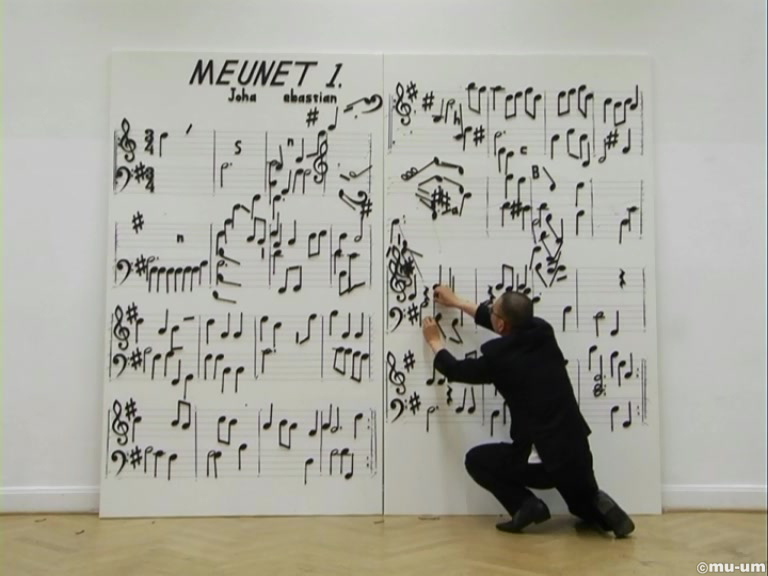 MEUNET 1.
Joha ebastian
S n
C
B
n
©mu-um